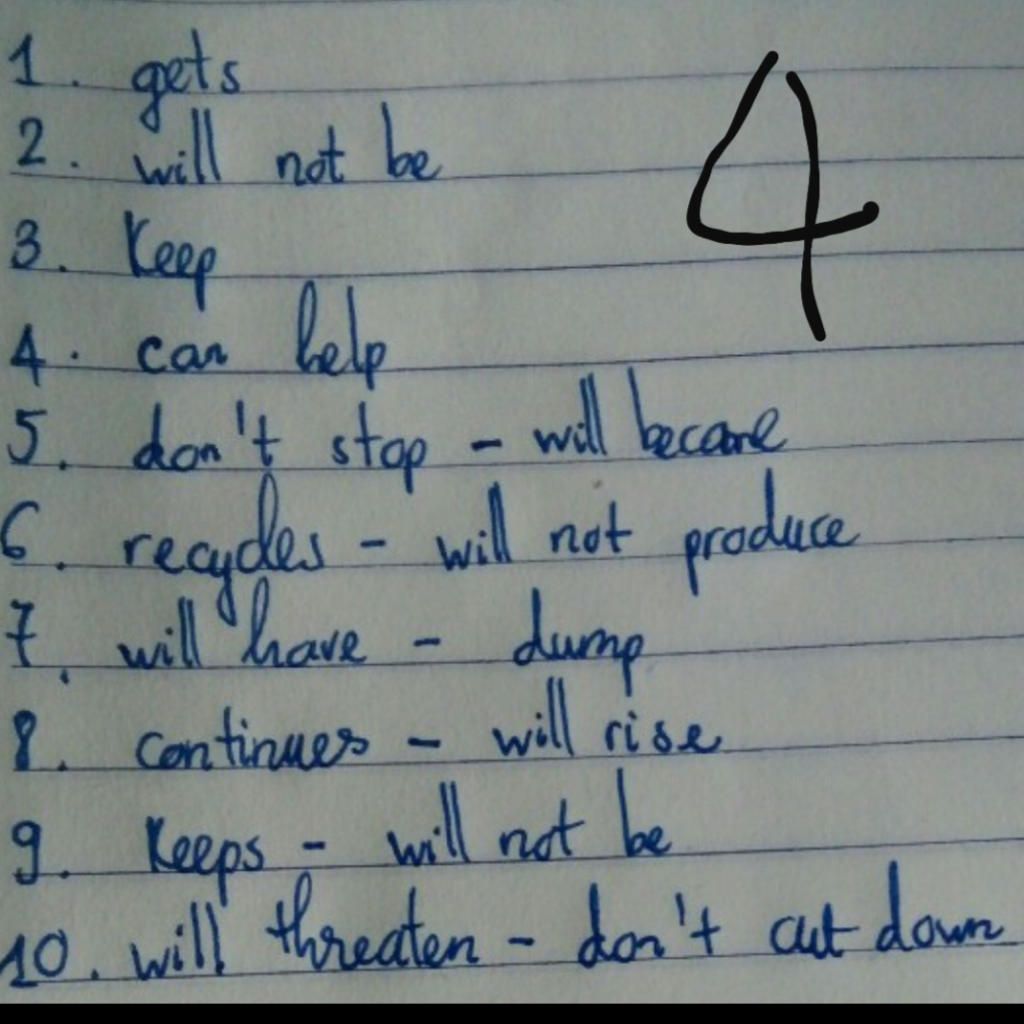 1. gets
4
2. will not be
3. Keep
4. can help
5. don't stop - will become
6. recycles - will not produce
7. will have - dump
8. continues - will rise
9. Keeps - will not be
10. will threaten - don't cut down